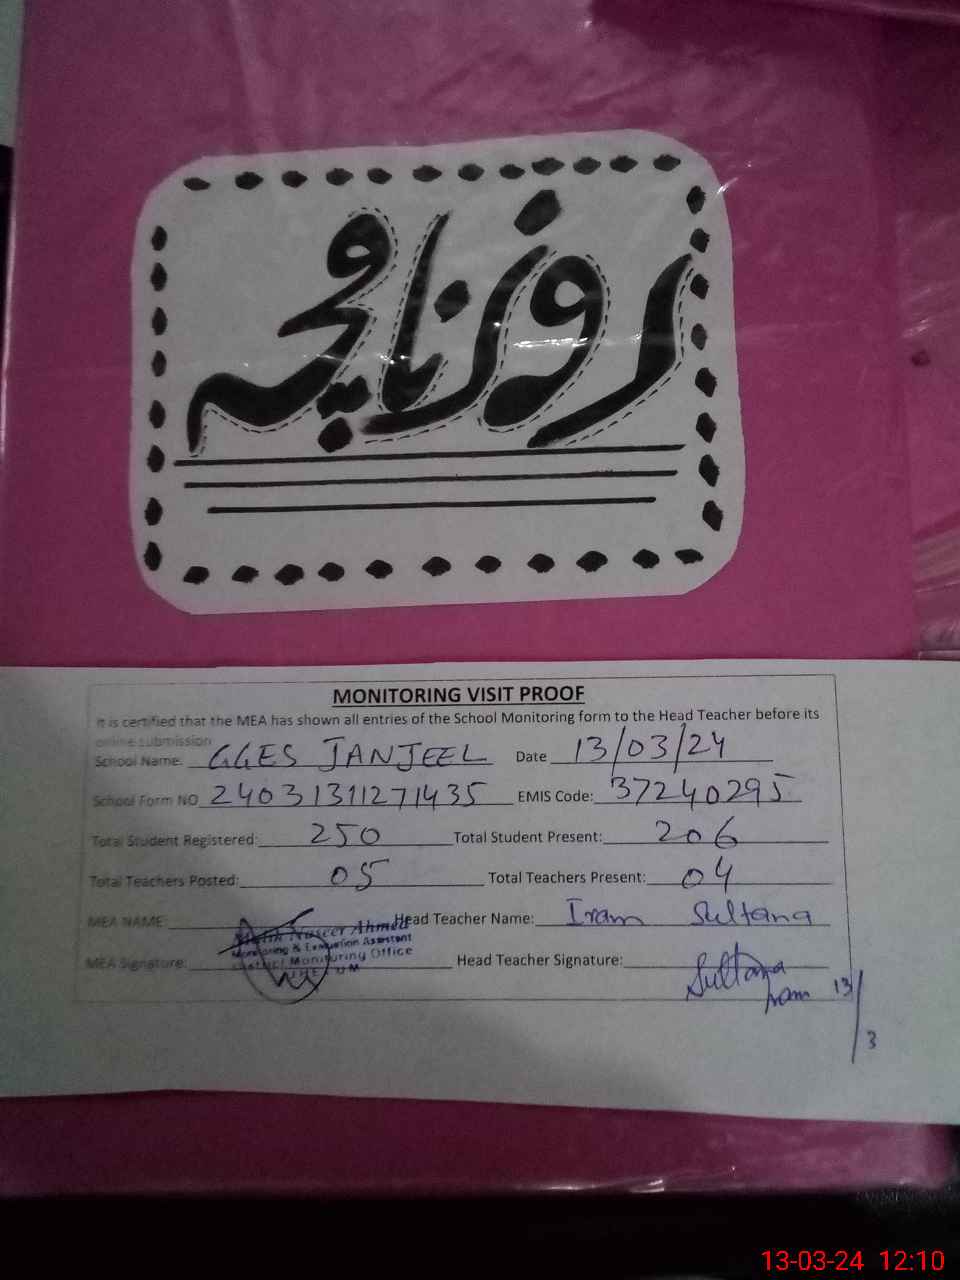 روزنامچہ
MONITORING VISIT PROOF
It is certified that the MEA has shown all entries of the School Monitoring form to the Head Teacher before its
online submission
School Name: GGES JANJEEL Date 13/03/24
School Form NO 24031311271435 EMIS Code: 37240295
Total Student Registered: 250 Total Student Present: 206
Total Teachers Posted: 05 Total Teachers Present: 04
MEA NAME: Head Teacher Name: Iram Sultana
Malik Naseer Ahmed
Monitoring & Evaluation Assistant
District Monitoring Office
JHELUM
MEA Signature: Head Teacher Signature: Sultana
Iram 13/3
13-03-24 12:10